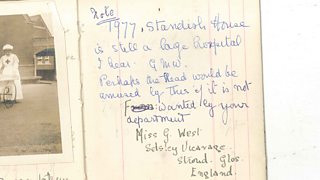 Note
1977, Standish House
is still a large Hospital
I hear. G.M.W.
Perhaps the Head would be
amused by this if it is not
wanted by your
department
Miss G. West
Selsley Vicarage.
Stroud. Glos.
England.